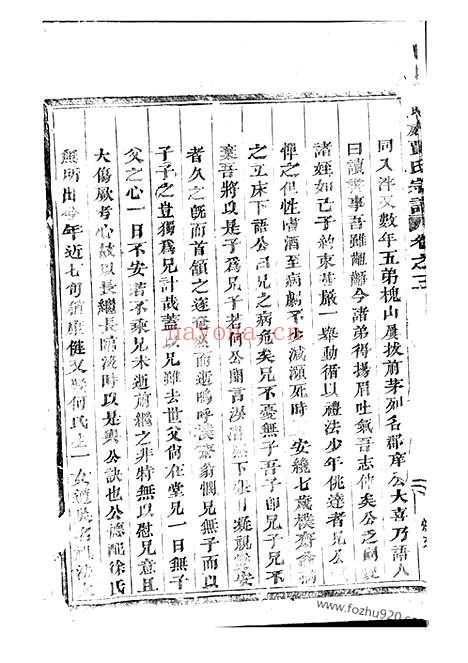 氏宗譜卷之二
同入泮又數年五弟槐山屢拔前茅列名郡庠公大喜乃語人
曰讀書事吾雖齟齬今諸弟得揚眉吐氣吾志伸矣公之
諸姪如己子約束甚嚴一舉動循以禮法少年佻達者見公
憚之但性嗜酒至病劇不減瀕死時安纔七歲樸齋翁
之立床下語公曰兄之病危矣兄不憂無子吾子即兄子兄不
棄吾將以是子為兄子若何公聞言淚潸然下張目凝視安
者久之旣而首頷之遂瞑而逝嗚呼漢齋翁憫兄無子而以
子子之豈獨為兄計哉蓋兄雖去世父尚在堂兄一日無子
父之心一日不安若不乘兄未逝前繼之非特無以慰兄意且
大傷厥考心故以長繼長臨沒時以是與公訣也公德配徐氏
無所出今年近七旬猶康健又娶何氏生一女適吳名
nayona.cn
www.fozhu920.com